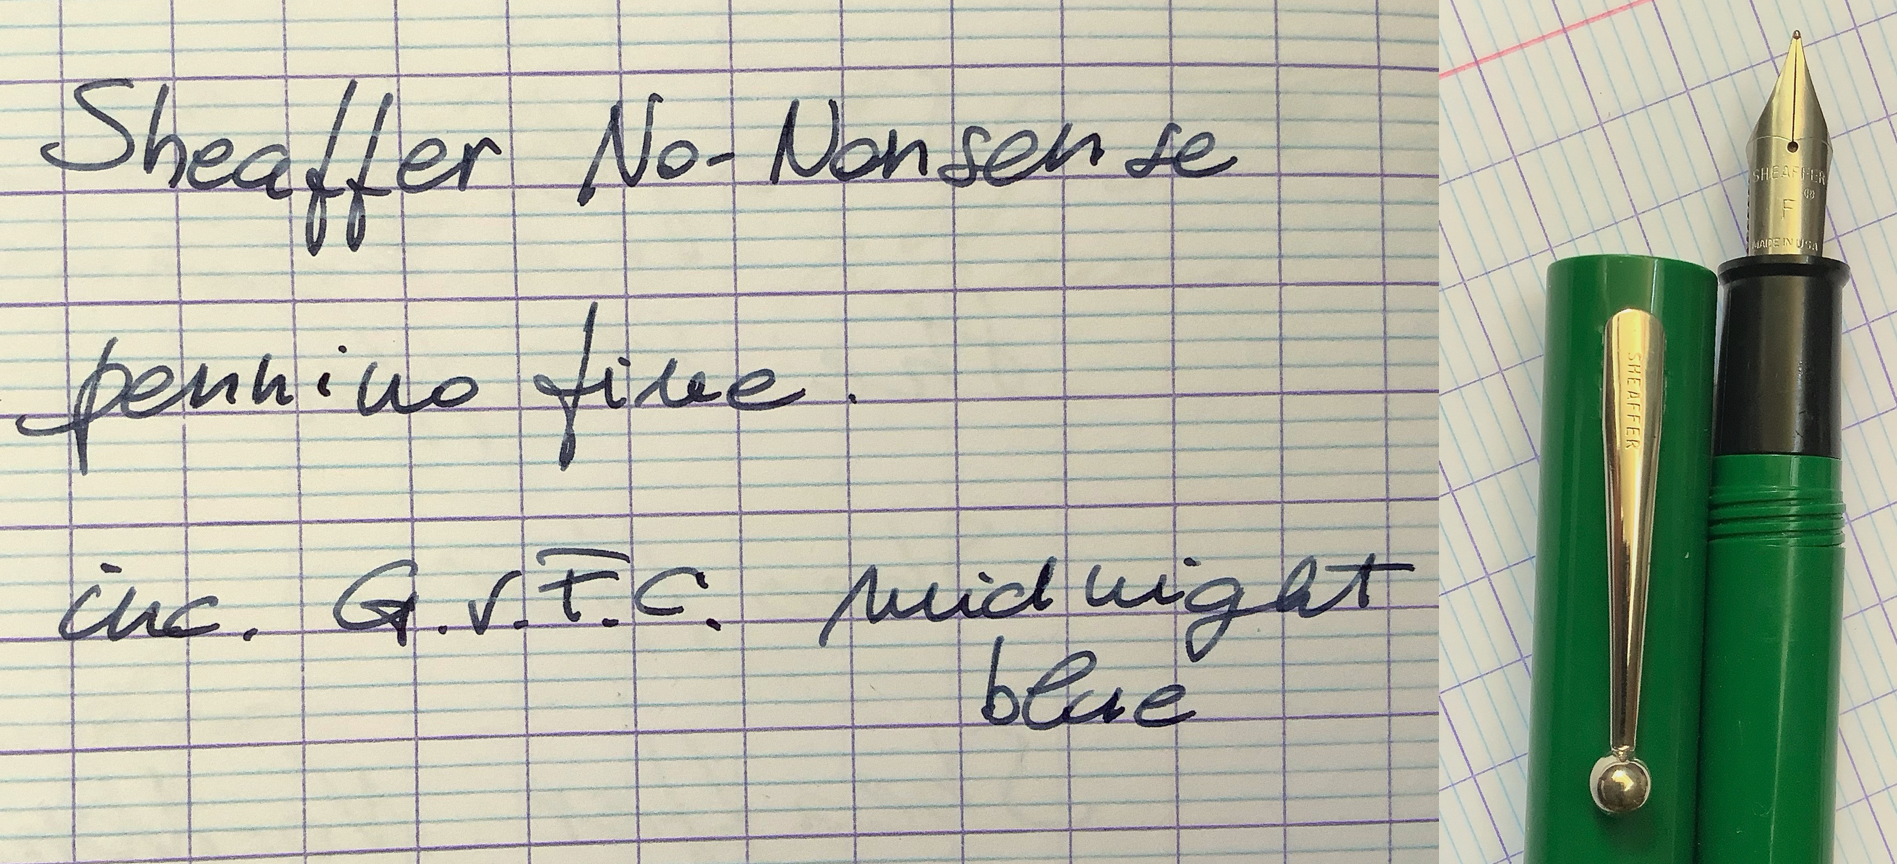 Sheaffer No-Nonsense
pennino fine.
inc. G.v.F.C. midnight
blue
SHEAFFER
F
MADE IN USA
SHEAFFER